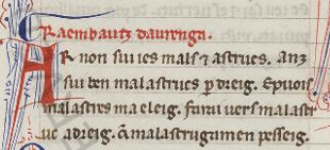 Raembautz daurenga.
AR non sui ies mals ⁊ astrucs. Anz
sui ben malastrucs p dreig. E puois
malastres ma eleig. farai vers malastr
uc adreig. cȃ malastrugamen pesseig.